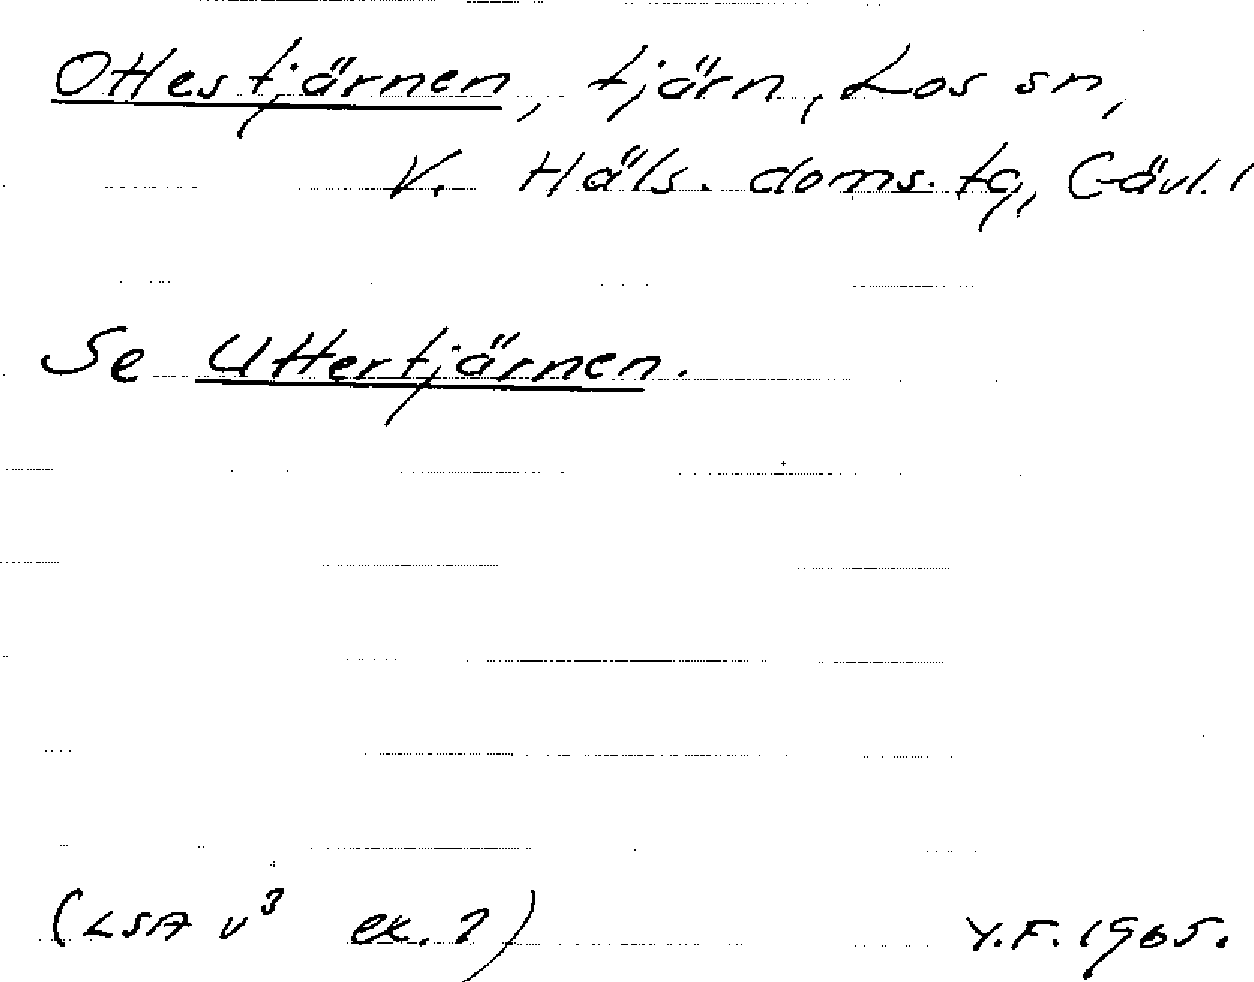 Ottestjärnen, tjärn, Los sn,
V. Häls. doms. tg, Gävl. l
Se Uttertjärnen.
(LSA v³ ek. 2) Y.F. 1965.